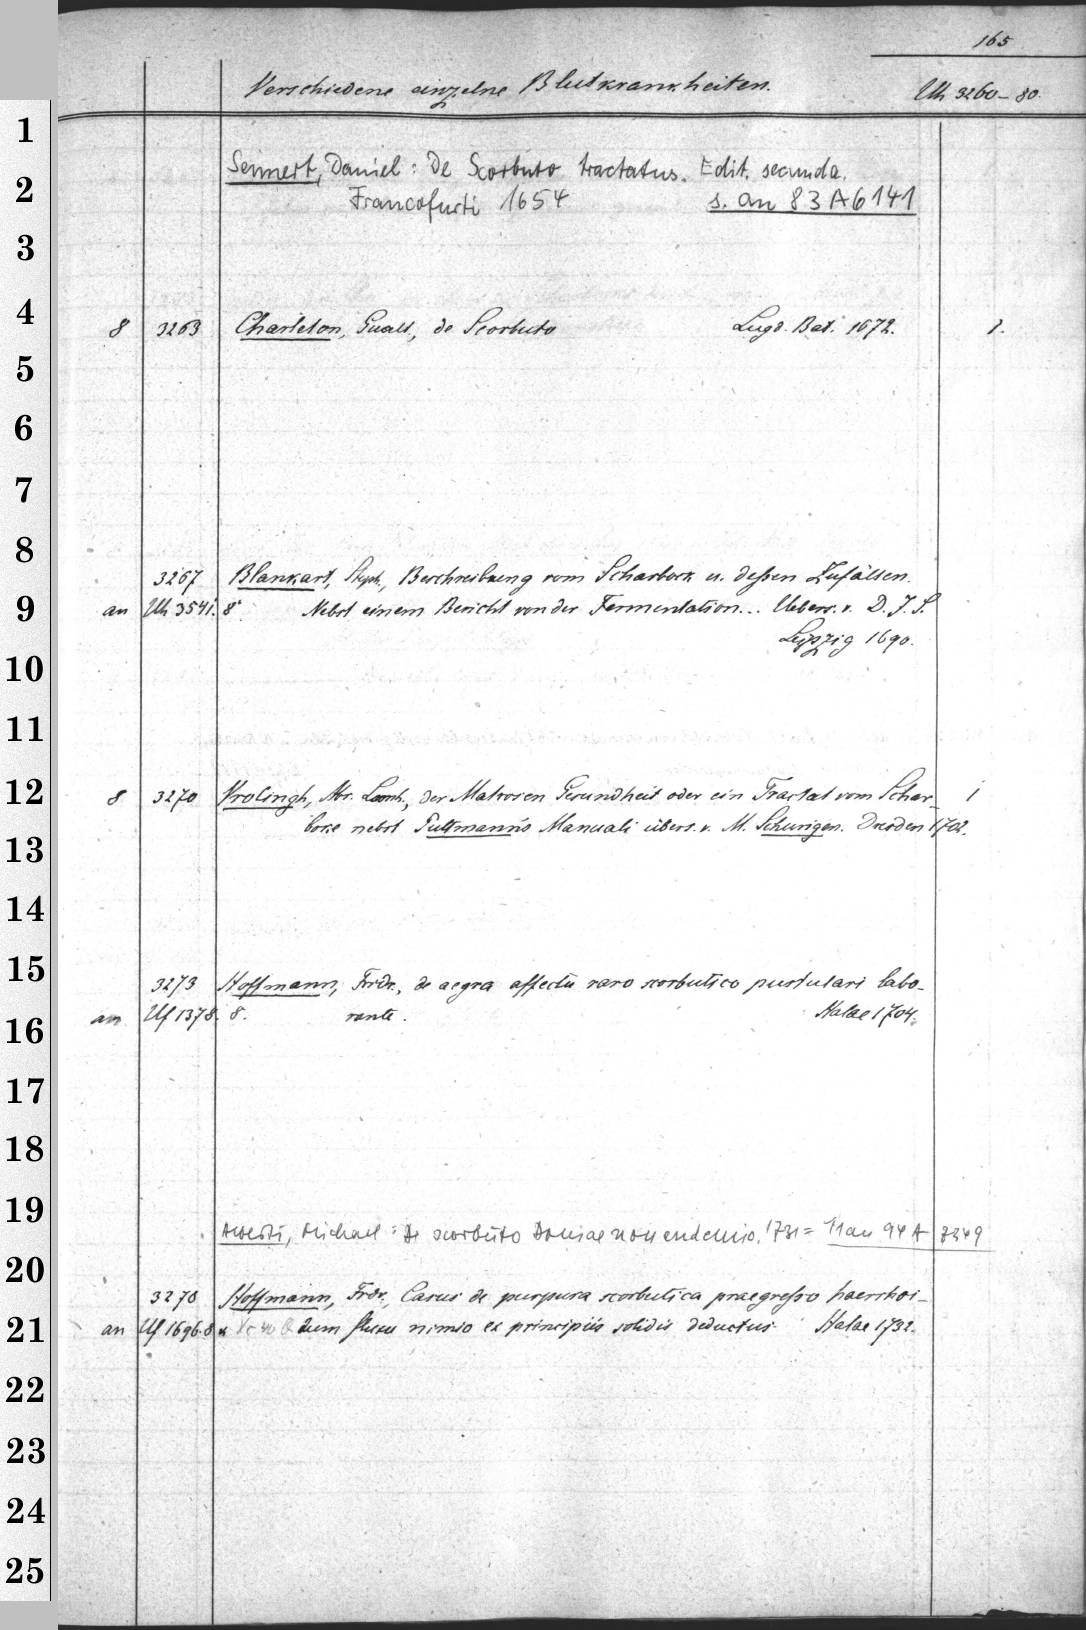 165
Verschiedene einzelne Blutkrankheiten. Uh 3260-80.
1
2
3
4
5
6
7
8
9
10
11
12
13
14
15
16
17
18
19
20
21
22
23
24
25
Sennert, Daniel: De Scorbuto tractatus. Edit. secunda.
Francofurti 1654 s. an 83 A 6141
8 3263 Charleton, Gualt., de Scorbuto Lugd. Bat. 1672. 1.
3267 Blankart, Steph., Beschreibung vom Scharbock u. deßen Zufällen.
an Uh 3541. 8°. Nebst einem Bericht von der Fermentation... Uebers. v. D. J. S.
Leipzig 1690.
8 3270 Vrolingh, Mr. Leonh., der Matrosen Gesundheit oder ein Tractat vom Schar- 1
bock nebst Pullmanns Manuali übers. v. M. Schurigen. Dresden 1702.
3273 Hoffmann, Fridr., de aegra affectu raro scorbutico pustulari labo-
an Uf 1378. 8. rante. Halae 1704.
Alberti, Michael: De scorbuto Daniae non endemio. 1731 = 11 an 94 A 7349
3278 Hoffmann, Frdr., Casus de purpura scorbutica praegresso haemrhoi-
an Uf 1696. 8 dum fluxu nimio ex principiis solidis deductus. Halae 1732.